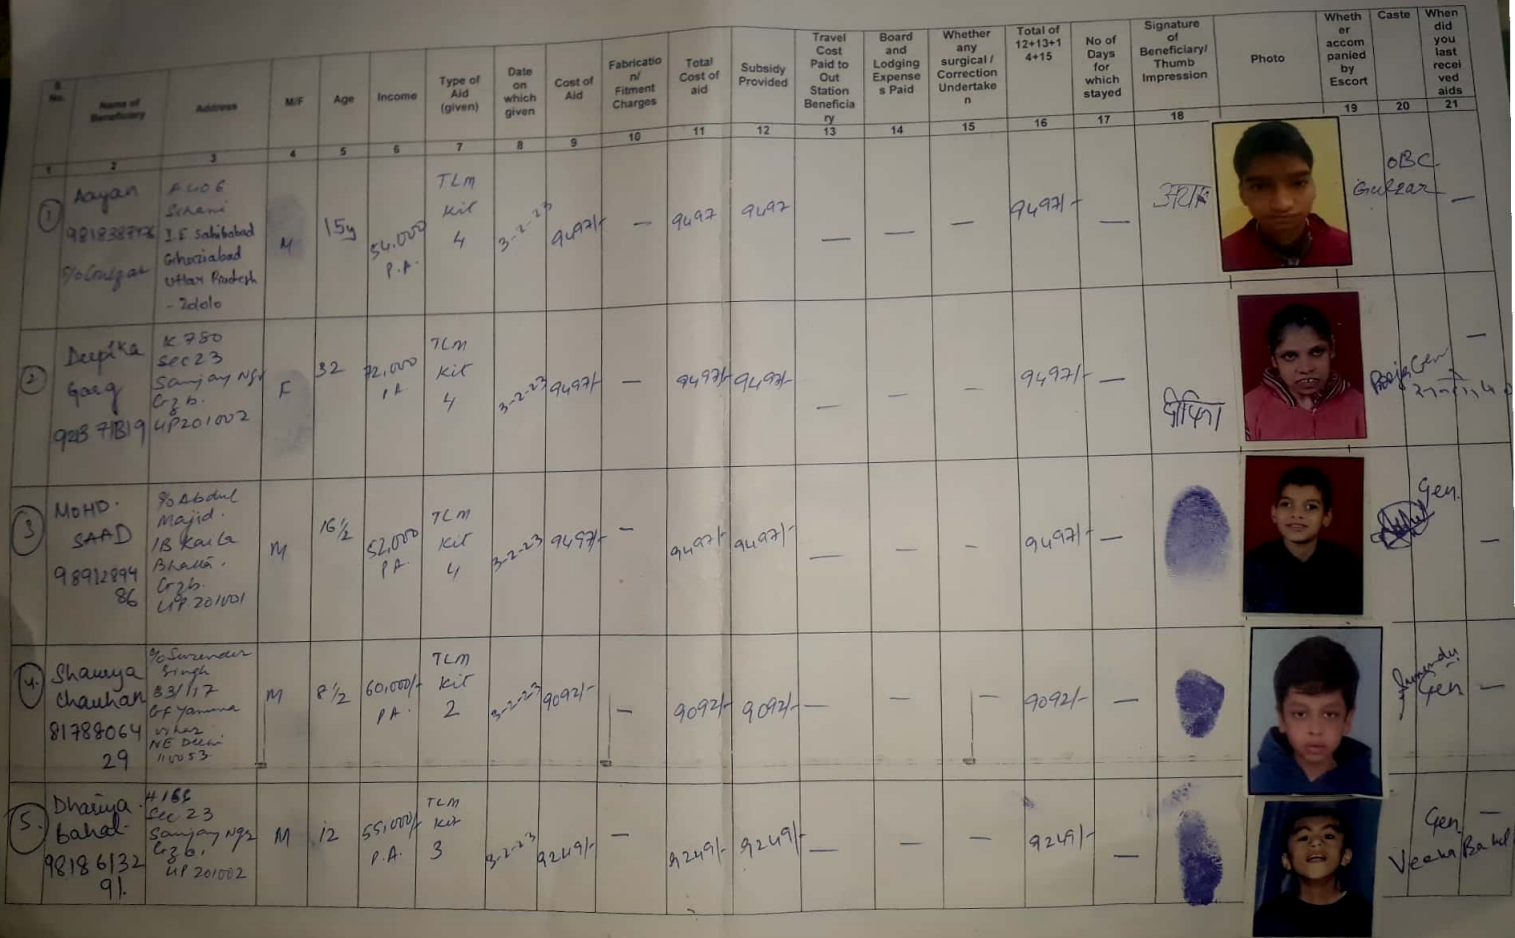 S. No.
Name of Beneficiary
Address
M/F
Age
Income
Type of Aid (given)
Date on which given
Cost of Aid
Fabricatio n/ Fitment Charges
Total Cost of aid
Subsidy Provided
Travel Cost Paid to Out Station Beneficia ry
Board and Lodging Expense s Paid
Whether any surgical / Correction Undertake n
Total of 12+13+1 4+15
No of Days for which stayed
Signature of Beneficiary/ Thumb Impression
Photo
Wheth er accom panied by Escort
Caste
When did you last recei ved aids
1 2 3 4 5 6 7 8 9 10 11 12 13 14 15 16 17 18 19 20 21
1
Aayan
S/o Gulzar
A406
I.E Sahibabad
Ghaziabad
Uttar Pradesh
M
15y
54,000
P.A.
TLM
Kit
4
3-2-23
9497/-
—
9497
9497
—
—
—
9497/-
—
OBC
Gulzar
—
2
Deepika
Garg
K 780
Sec 23
Sanjay Ngr
Gzb.
UP 201002
F
32
72,000
PA
TLM
Kit
4
3-2-23
9497/-
—
9497/-
9497/-
—
—
9497/-
—
दीपिका
Gen
—
3
MOHD.
SAAD
98912894
86
Abdul
Majid.
Kaila
Bhatta.
Gzb.
UP 201001
M
16½
52,000
PA.
TLM
Kit
4
3-2-23
9497/-
—
9497/-
9497/-
—
—
—
9497/-
—
Gen.
—
4.
Shaurya
Chauhan
81788064
29
Surender
Singh
GF Yamuna
Vihar
NE Delhi
110053
M
8½
60,000/-
PA.
TLM
Kit
2
3-2-23
9092/-
—
9092/-
9092/-
—
—
—
9092/-
—
Gen
—
5.
Bahal.
98186132
91.
Sec 23
Sanjay Ngr
Gzb.
UP 201002
M
12
55,000/-
P.A.
TLM
Kit
3
3-2-23
9249/-
—
9249/-
9249/-
—
—
—
9249/-
—
Gen
—
Veena Bahal